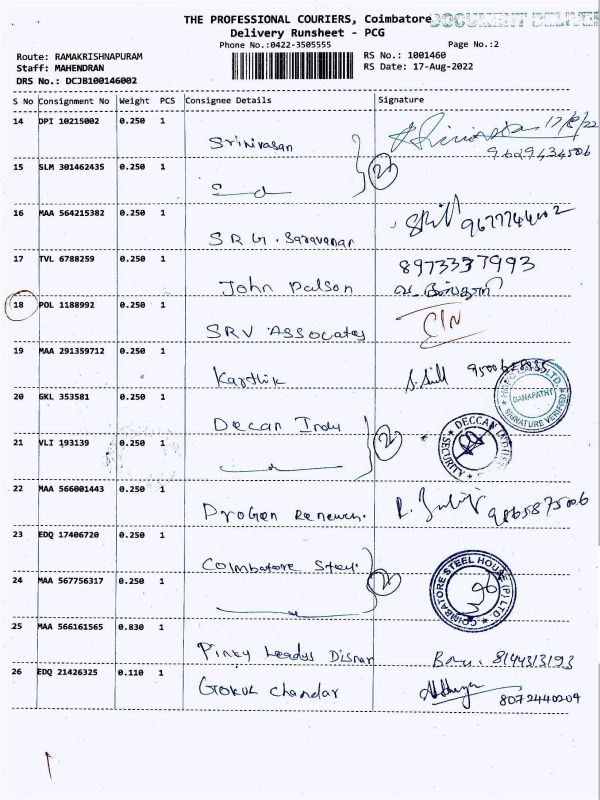 THE PROFESSIONAL COURIERS, Coimbatore
DOCUMENT DELIVER
Delivery Runsheet - PCG
Phone No.:0422-3505555 Page No.:2
Route: RAMAKRISHNAPURAM RS No.: 1001460
Staff: MAHENDRAN RS Date: 17-Aug-2022
DRS No.: DCJB100146002
S No Consignment No Weight PCS Consignee Details Signature
14 DPI 10215002 0.250 1 Srinivasan 17/8/22
9629434506
15 SLM 301462435 0.250 1
2
16 MAA 564215382 0.250 1 Saravanan
17 TVL 6788259 0.250 1 John Palson 8973337993
18 POL 1188992 0.250 1 SRV Assocates
19 MAA 291359712 0.250 1 Karthik
GANAPATHY
SIGNATURE VERIFIED
20 GKL 353581 0.250 1 Deccan Indu
21 VLI 193139 0.250 1
2
DECCAN
SECURITY
22 MAA 566001443 0.250 1 9865875006
23 EDQ 17406720 0.250 1 Coimbatore Steel
24 MAA 567756317 0.250 1
2
COIMBATORE STEEL HOUSE (P) LTD
25 MAA 566161565 0.830 1 8144313193
26 EDQ 21426325 0.110 1 Gokul Chandar
8072440209